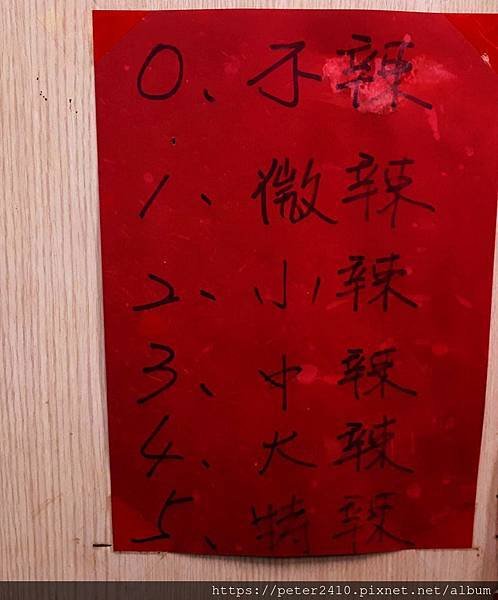 0、不辣
1、微辣
2、小辣
3、中辣
4、大辣
5、特辣
https://peter2410.pixnet.net/album